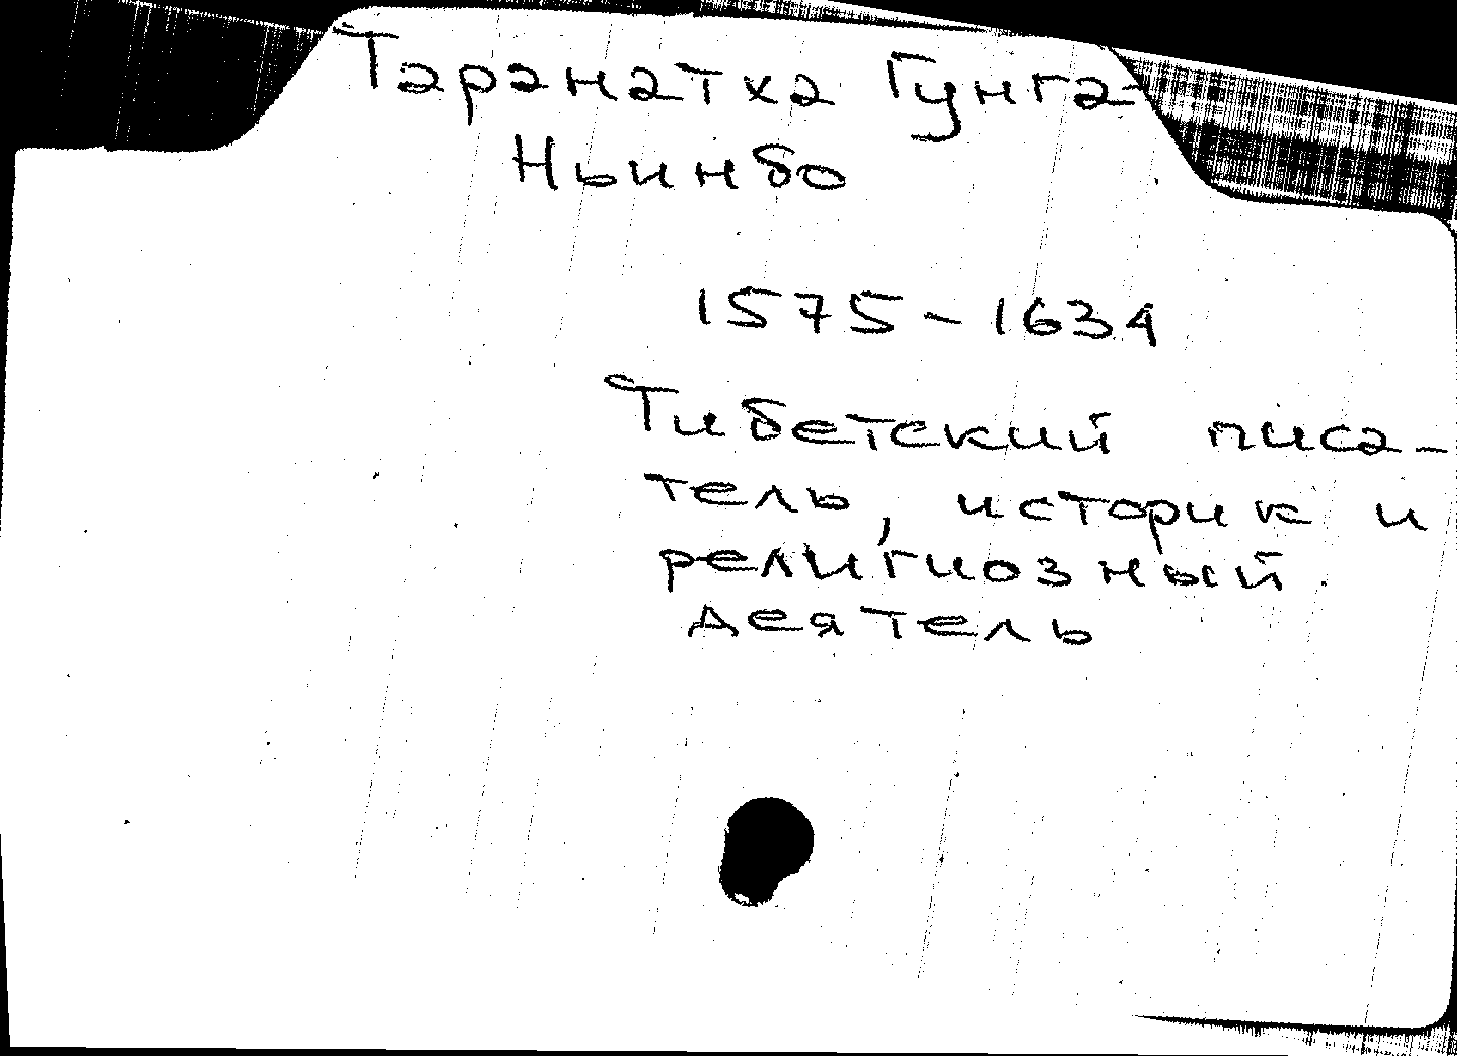 Таранатха Гунга-
Ньинбо
1575-1634
Тибетский писа-
тель, историк и
религиозный
деятель